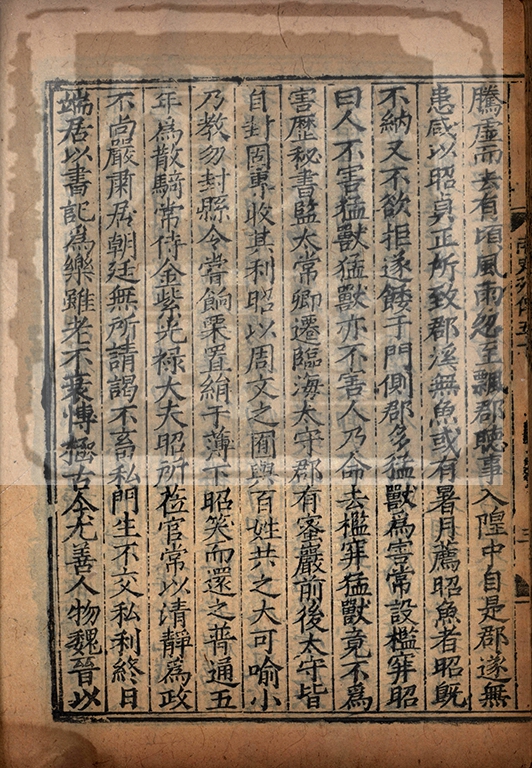 騰虛而去有頃風雨忽至飄郡聽事入隍中自是郡遂無
患咸以昭真正所致郡溪無魚或有暑月薦昭魚者昭既
不納又不欲拒遂餧于門側郡多猛獸為害常設檻穽昭
曰人不害猛獸猛獸亦不害人乃命去檻穽猛獸竟不為
害歷秘書監太常卿遷臨海太守郡有蜜巖前後太守皆
自封固專收其利昭以周文之囿與百姓共之大可喻小
乃教勿封縣令嘗餉栗置絹于薄下昭笑而還之普通五
年為散騎常侍金紫光祿大夫昭所莅官常以清靜為政
不尚嚴肅居朝廷無所請謁不畜私門生不交私利終日
端居以書記為樂雖老不衰愽極古今尤善人物魏晉以